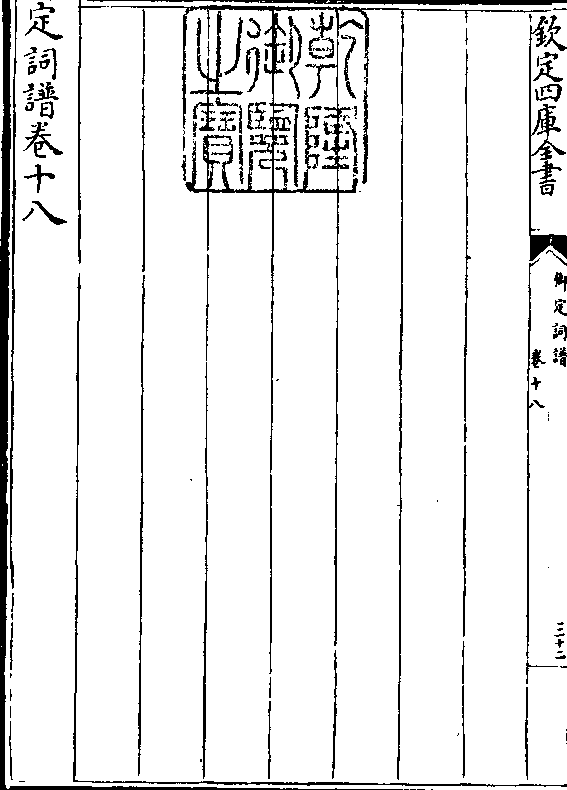 欽定四庫全書
御定詞譜
卷十八
三十二
乾隆御覽之寶
定詞譜卷十八